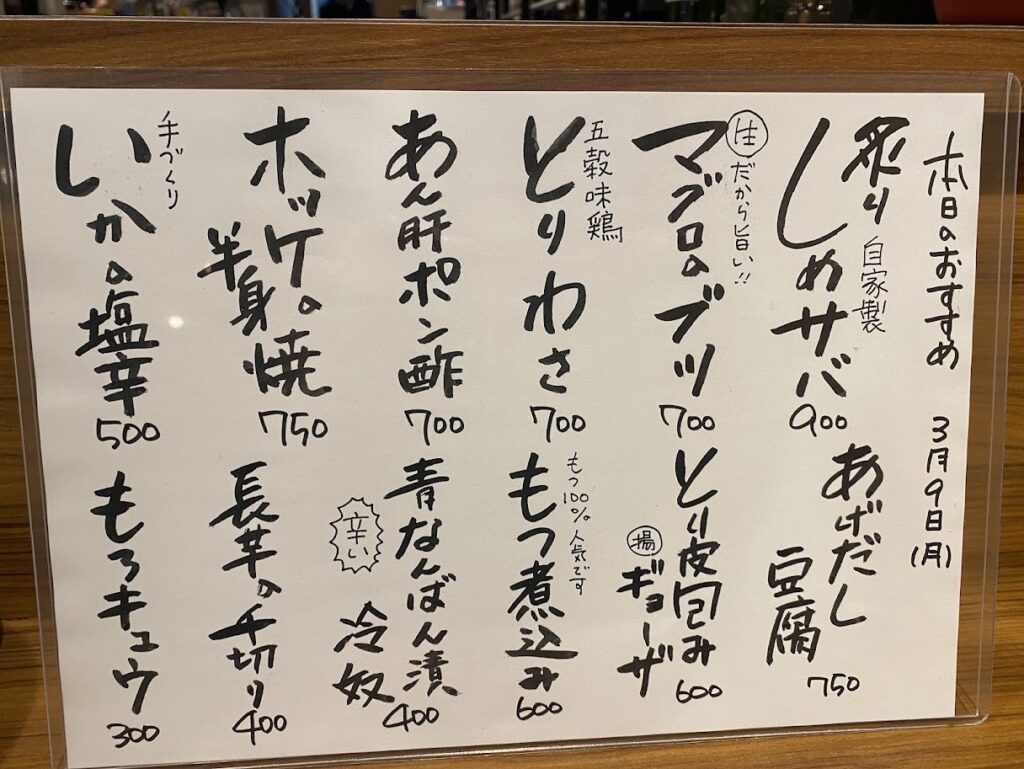 本日のおすすめ 3月9日(月)
炙り 自家製
しめサバ
900
生だから旨い!!
マグロのブツ
700
五穀味鶏
とりわさ
700
あん肝ポン酢
700
ホッケの
半身焼
750
手づくり
いかの塩辛
500
あげだし
豆腐
750
とり皮包み
揚ギョーザ
600
もつ100%人気です
もつ煮込み
600
青なんばん漬
辛い
冷奴
400
長芋の千切り
400
もろキュウ
300